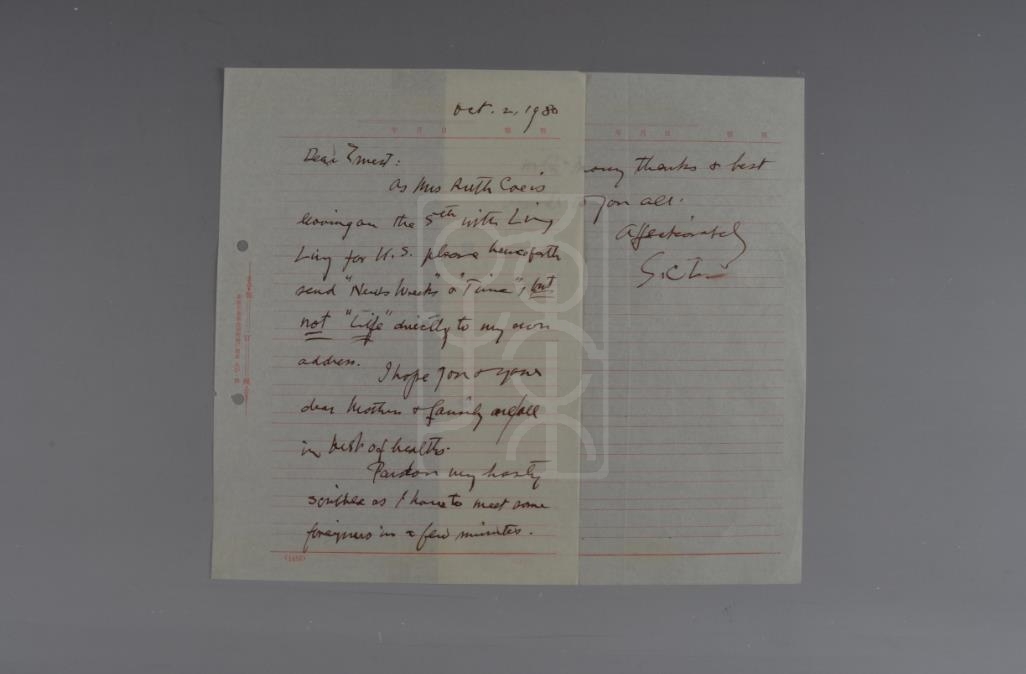 Oct. 2, 1980
Dear Ernest:
As Mrs Ruth Coe is
leaving on the 5th with Ling
Ling for U.S. please henceforth
send "News Week" & "Time", but
not "Life" directly to my own
address.
I hope you & your
dear Mother & family are all
in best of health.
Pardon my hasty
scribble as I have to meet some
foreigners in a few minutes.
年 月 日
(1452)
年 月 日
many thanks & best
you all.
Affectionately